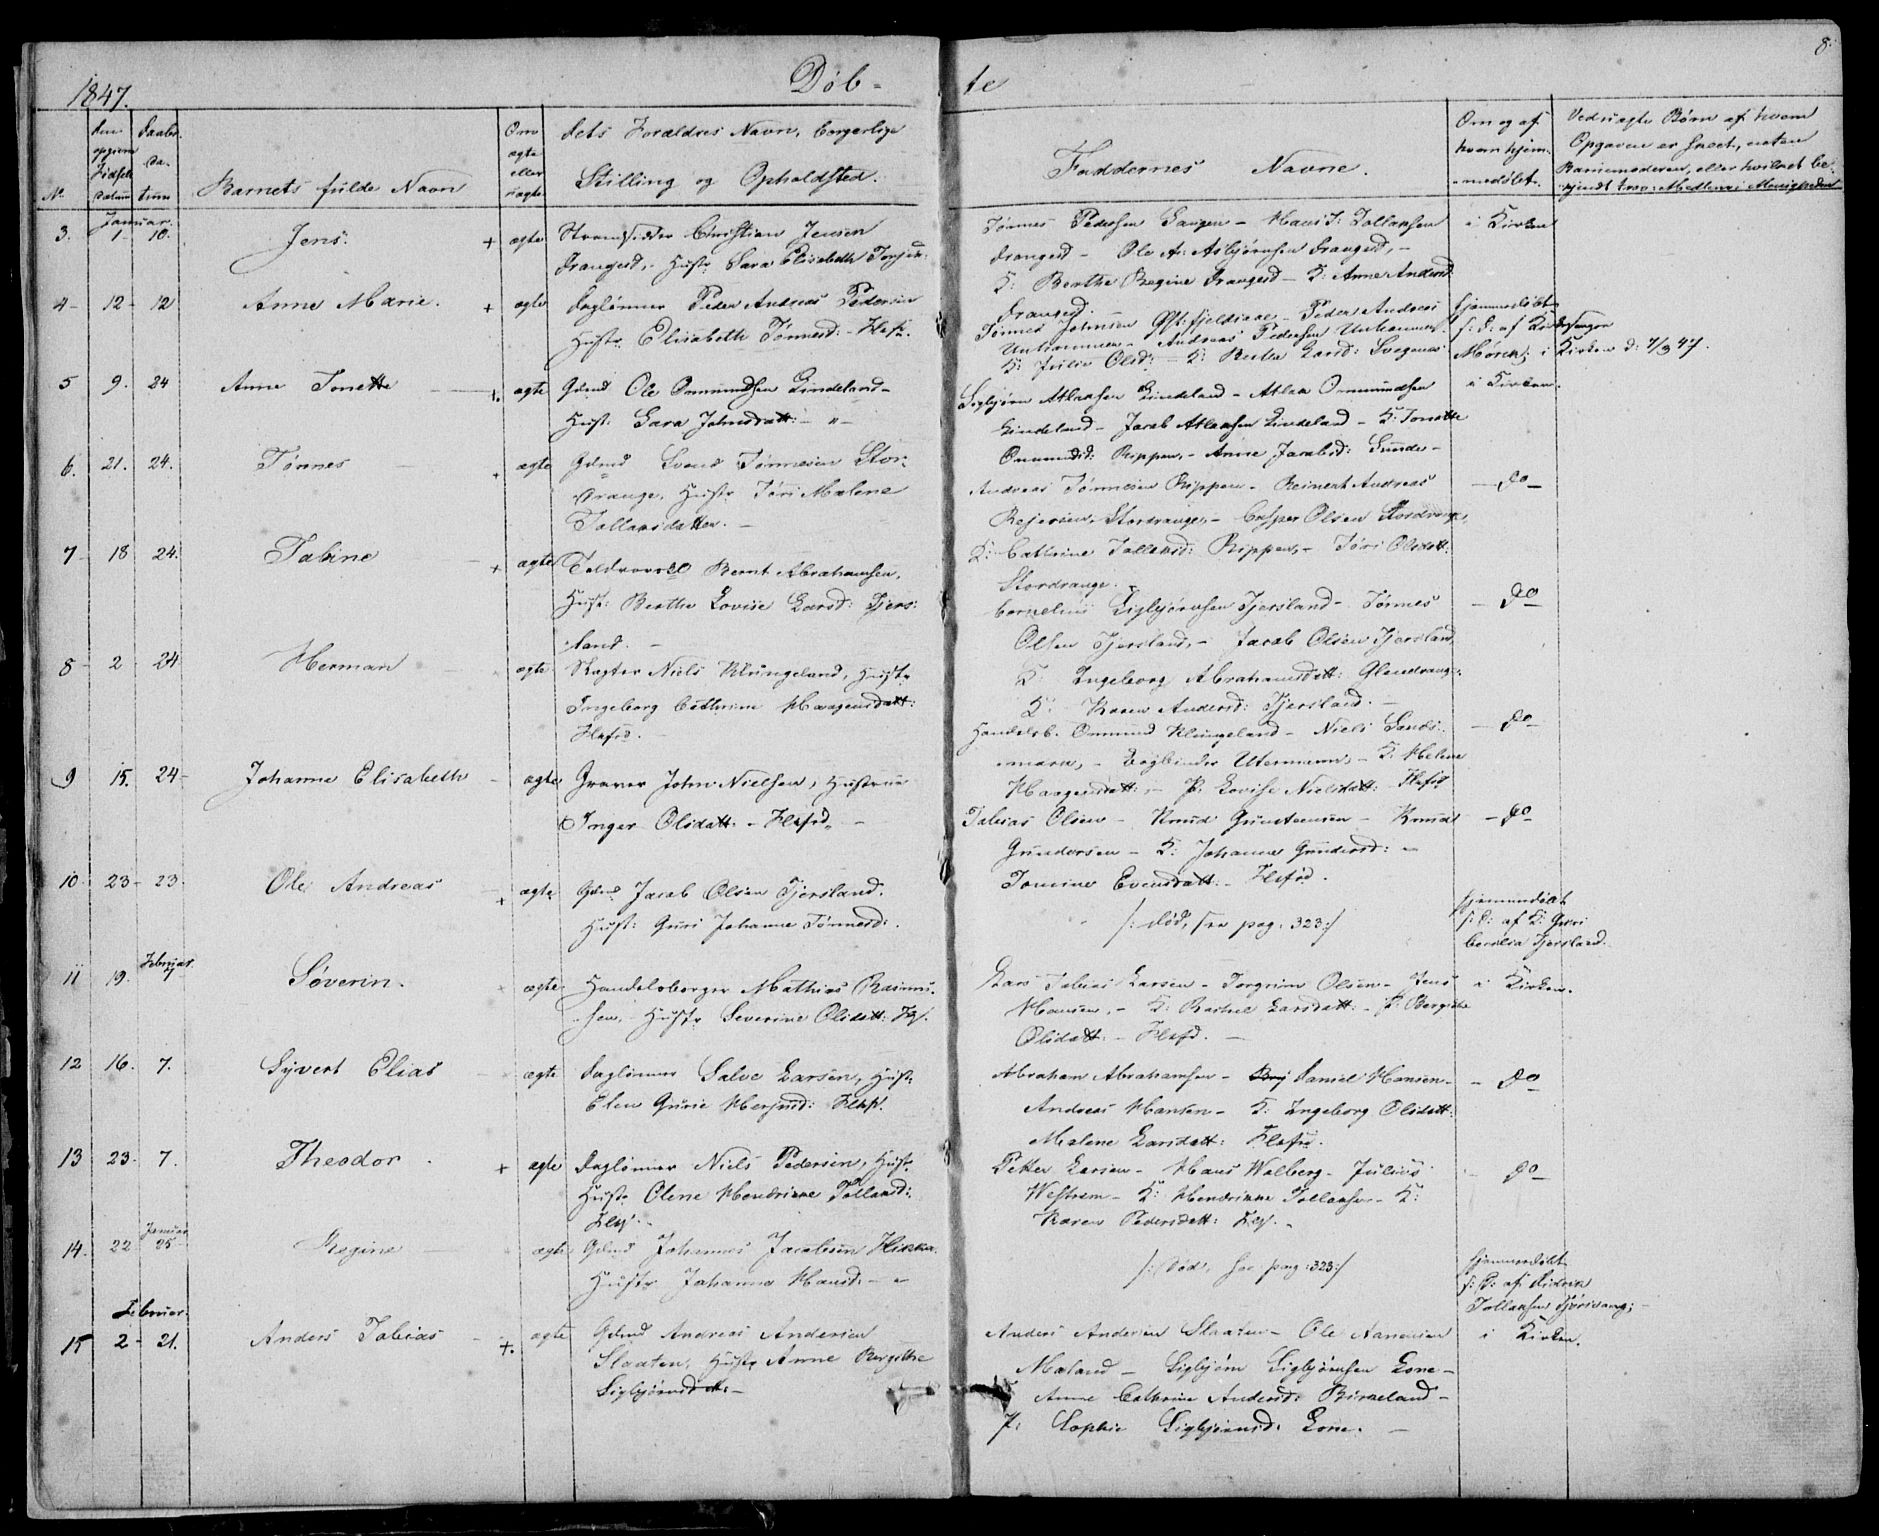 8.
1847. Døb- te
No. den opgivne Fødsels datum Daabs-datum Barnets fulde Navn Om ægte eller uægte Dets Forældres Navn, borgerlige Stilling og Opholdsted. Faddernes Navne. Om og af hvem hjem-medøbt. Ved uægte Børn af hvem Opgaven er skeet, enten
Januar.
3. 1- 10. Jens. + ægte Christian Jensen
Drangeid, Hustr Sara Elisabeth
Tønnes Pedersen Haugen - Hans T: Tollaksen
Drangeid - Ole A: Asbjørnsen Drangeid, -
K: Berthe Regine Drangeid - K: Anne Andersd:
Drangeid.
i Kirken
4- 12- 12 Anne Marie. + ægte Daglønner Peder Andreas Pedersen
Hustr. Elisabeth Tønnesd: - Flekf.
Tønnes Johnsen - Peder Andreas
- Andreas Pedersen
K: Julie Olsd: - K: Berte Larsd:
hjemmedøbt
i Kirken d: 7/3 47.
5 9. 24 Anne Tonette +. ægte Gdmd Ole Ommundsen Lindeland -
Hust. Sara Johnsdatt: - " -
Sigbjørn Atlaksen Lindeland - Atlak Ommundsen
Lindeland - Jacob Atlaksen Lindeland - K: Tonette
Ommundsd: Rippen, - Anne Jacobsd: Sunde -
i Kirken.
6. 21. 24. Tønnes + ægte Gdmd Svend Tønnesen Stor-
drange, Hustr Tøri Malene
Tollaksdatter. -
Andreas Tønnesen Rippen - Reinert Andreas
Rejersen, Stordrange, - Casper Olsen Stordrange,
K: Cathrine Tollaksd: Rippen, - Tøri Olsdatt:
Stordrange.
- do -
7- 18 24. Tabine + ægte Bernt Abrahamsen,
Hust: Berthe Lovise Larsd: Tjers:
land. -
Cornelius Sigbjørnsen Tjersland - Tønnes
Olsen Tjersland, - Jacob Olsen Tjersland,
K: Ingeborg Abrahamsdatt:
K: Karen Andersd: Tjersland. -
- do -
8- 2- 24 Herman ægte Niels Klungeland, Hustr
Ingeborg Cathrine Haagensdatt:
Flefd. -
Handelsb. Ommund Klungeland - Niels
- K: Helene
Haagensdatt: - P: Lovise Nielsdatt: Flefd
- do -
9 15. 24- Johanne Elisabeth - ægte Graver John Nielsen, Hustrue
Inger Olsdatt: - Flefd. -
Tobias Olsen - Knud - Knud
Gundersen - K: Johanne Gundersd: -
Tomine Evensdatt: - Flefd.
- do
10- 23- 23. Ole Andreas + ægte Gdmd Jacob Olsen Tjersland.
Hust: Guri Johanne Tønnesd: .
/: død, see pag: 323:/
hjemmedøbt
f: D: af K: Guri
Tjersland.
Februar
11 19. 7 Søverin. ægte Handelsborger Mathias Rasmus-
sen, - Hustr Severine Olsdatt: Flf.
Lars Tobias Larsen - Torgrim Olsen - Jens
Hansen, - K: Rachel Larsdatt: - P: Bergitte
Olsdatt: - Flefd. -
i Kirken.
12 16. 7. Syvert Elias ægte Daglønner Salve Larsen, Hustr
Elen Gurie Flekf.
Abraham Abrahamsen - Daniel Hansen -
Andreas Hansen - K: Ingeborg Olsdatt:
Malene Larsdatt: Flefd.
- do
13 23. 7. Theodor . + ægte Daglønner Niels Pedersen, Hust.
Hustr Olene Hendrikke Tollaksd:
Flkf. -
Petter Larsen - Hans Walberg - Julius
- K: Hendrikke Tollaksen - K:
Karen Pedersdatt: Flf. -
- do -
Januar
14. 22 25 Regine - ægte Gdmd Johannes Jacobsen
Hustr Johanne Hansd: - "
/: Død, see pag: 323:/
hjemmedøbt
f: D: af
Tollaksen
Februar.
15 2- 21. Anders Tobias +. ægte Gdmd Andreas Andersen
Slaaten, Hustr Anne Bergitte
Sigbjørnsd
Anders Andersen Slaaten - Ole Aanensen
Moland - Sigbjørn Sigbjørnsen Lone -
Anne Cathrine Andersd: Birkeland -
P: Sophie Sigbjørnsd: Lone. -
i Kirken.